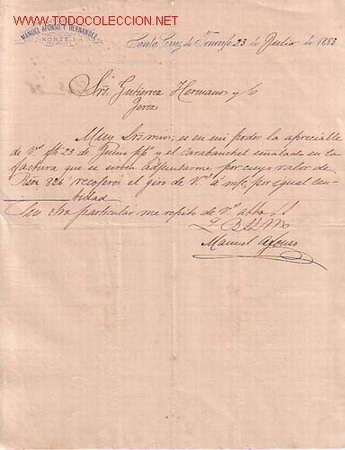 www.TODOCOLECCION.NET
MANUEL AFONSO Y HERNANDEZ
NORTE
Santa Cruz de Tenerife 23 de Julio de 1883
Sres Gutierrez Hermanos y C
Jerez
Muy Sres mios: es en mi poder la apreciable
de Vs 23 de y el señalado en la
factura que se sirven adjuntarme por cuyo valor de
826 el giro de Vs a m/c por igual can-
tidad
Sin otro particular me repito de Vs
Manuel Afonso